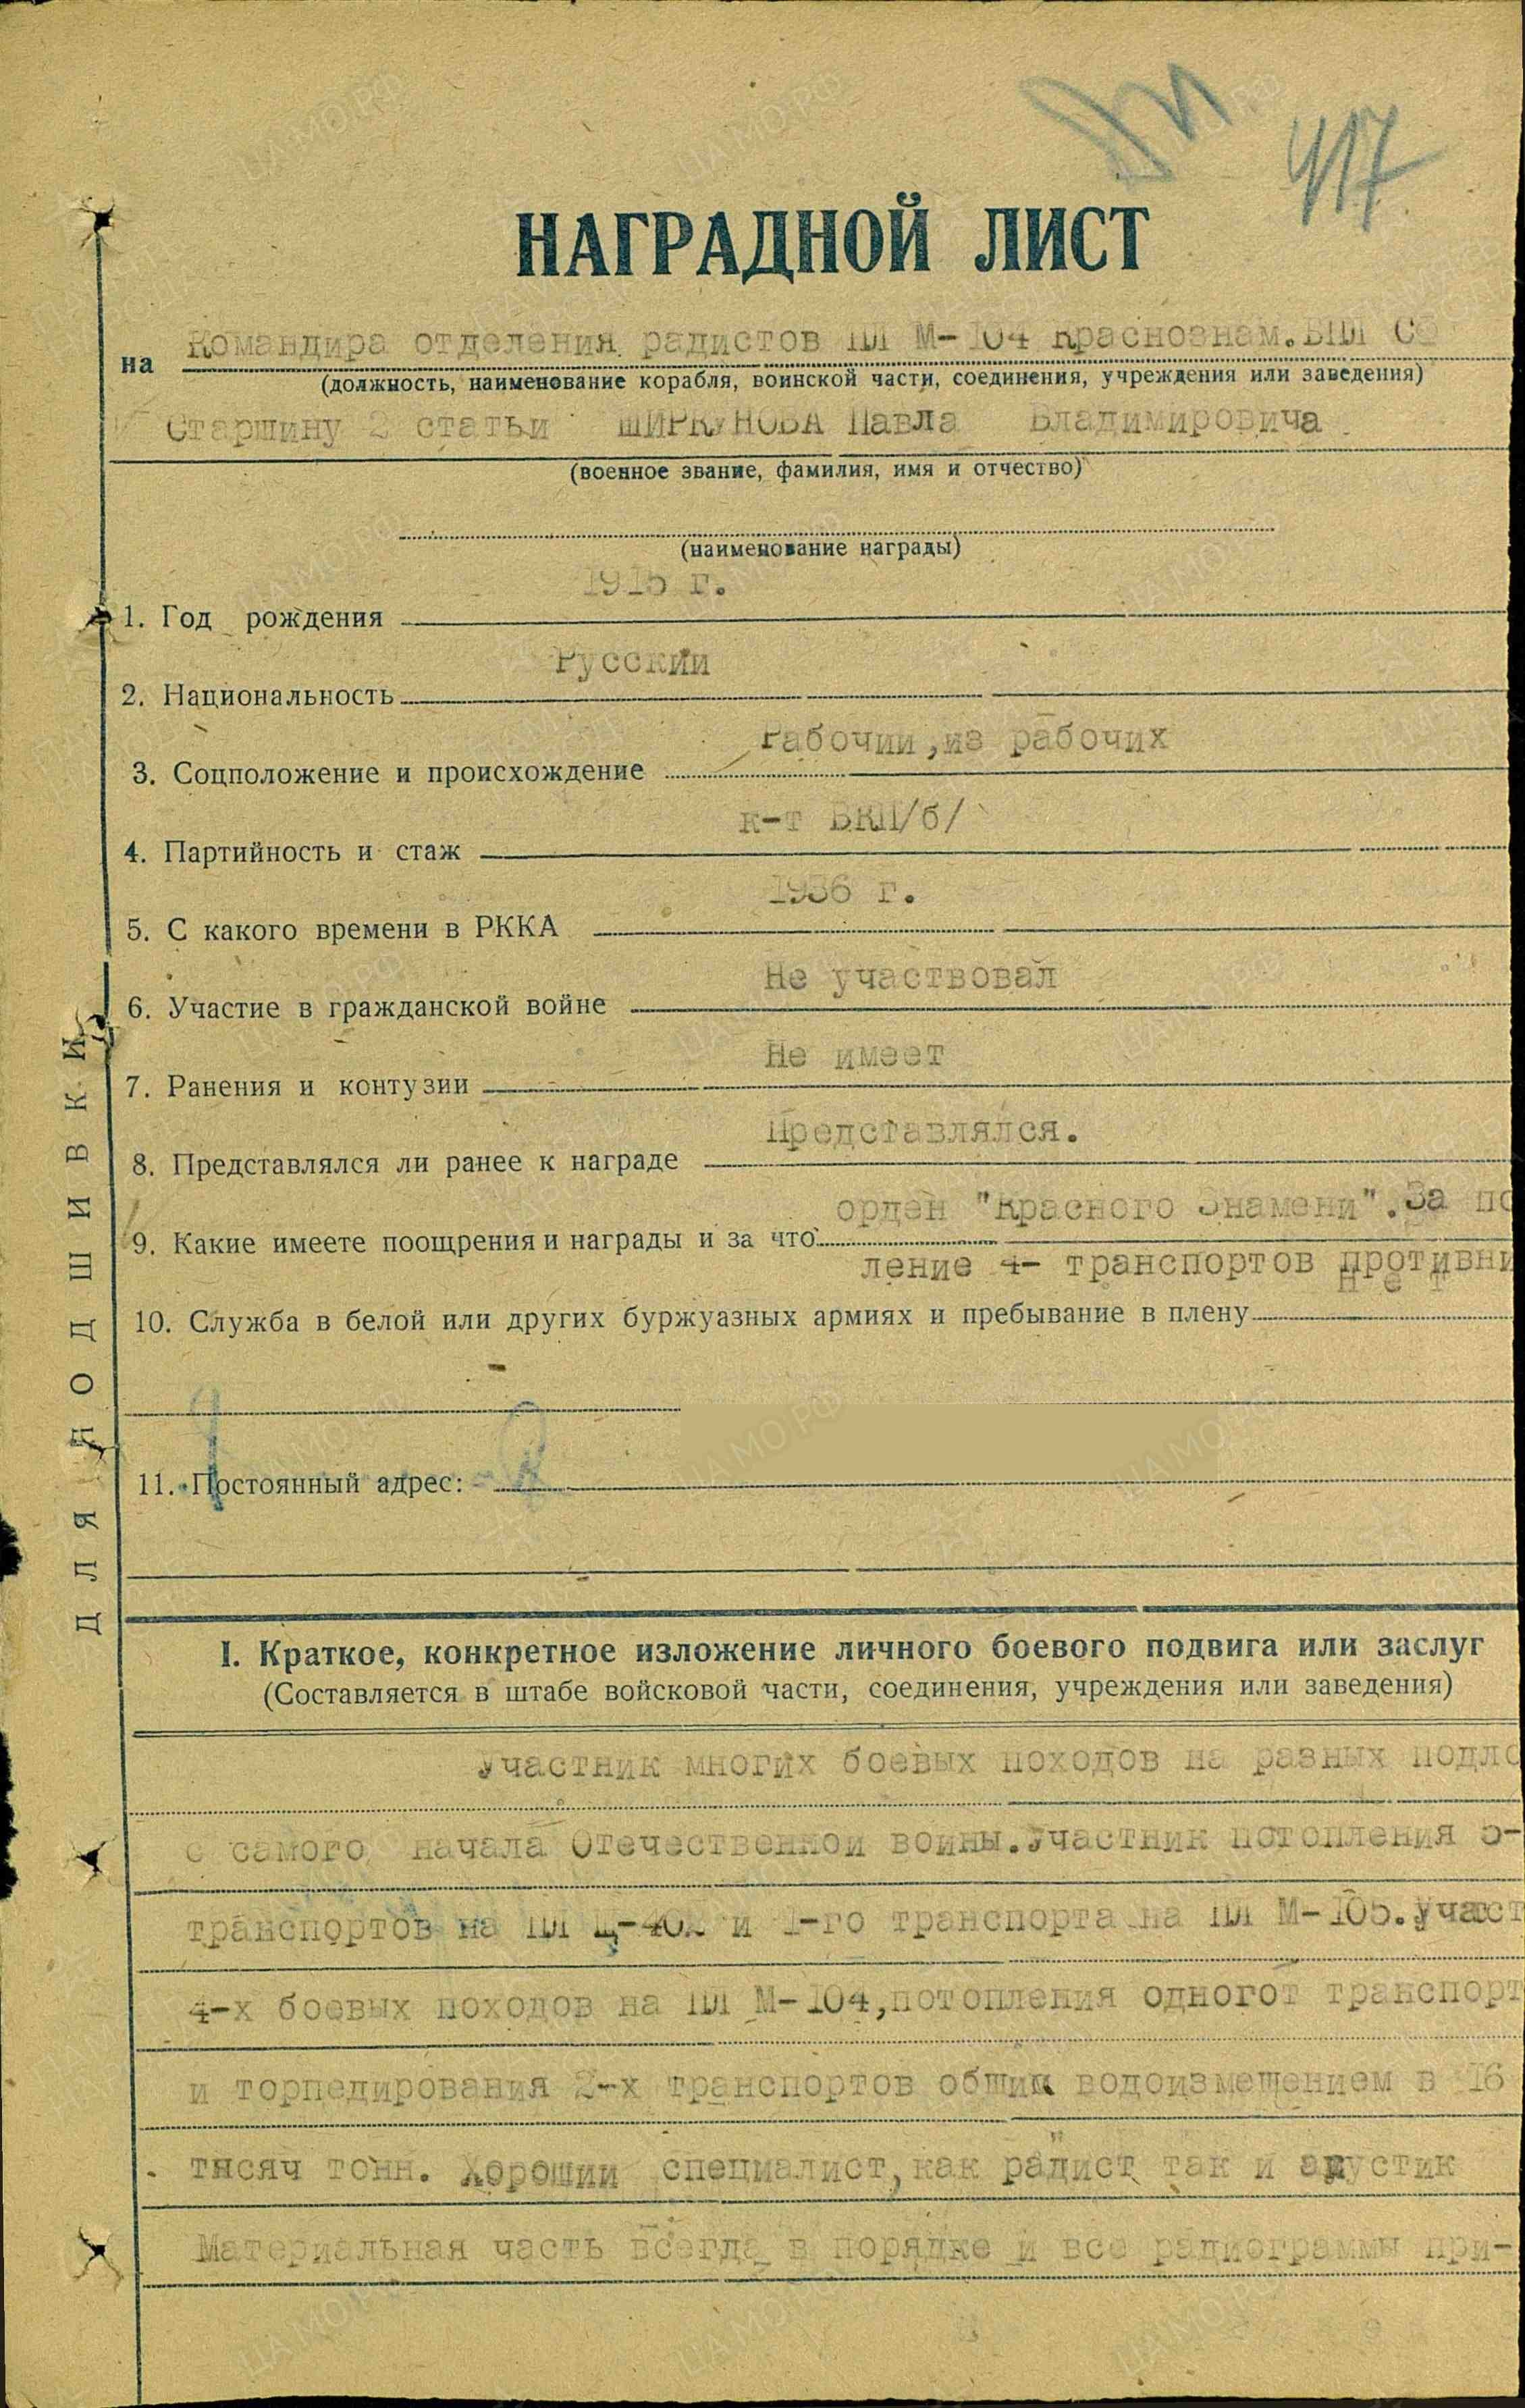 417
НАГРАДНОЙ ЛИСТ
на Командира отделения радистов ПЛ М-104 Краснознам.БПЛ СФ
(должность, наименование корабля, воинской части, соединения, учреждения или заведения)
Старшину 2 статьи ШИРКУНОВА Павла Владимировича
(военное звание, фамилия, имя и отчество)
(наименование награды)
1915 г.
1. Год рождения
Русский
2. Национальность
Рабочий,из рабочих
3. Соцположение и происхождение
к-т ВКП/б/
4. Партийность и стаж
1936 г.
5. С какого времени в РККА
Не участвовал
6. Участие в гражданской войне
Не имеет
7. Ранения и контузии
Представлялся.
8. Представлялся ли ранее к награде
орден "Красного Знамени".За по
9. Какие имеете поощрения и награды и за что
ление 4- транспортов противни
нет
10. Служба в белой или других буржуазных армиях и пребывание в плену
11. Постоянный адрес:
ДЛЯ ПОДШИВКИ
I. Краткое, конкретное изложение личного боевого подвига или заслуг
(Составляется в штабе войсковой части, соединения, учреждения или заведения)
Участник многих боевых походов на разных подло
с самого начала Отечественной войны.Участник потопления 5-
транспортов на ПЛ Щ-402 и 1-го транспорта на ПЛ М-105.Участ
4-х боевых походов на ПЛ М-104,потопления одногот транспорт
и торпедирования 2-х транспортов общим водоизмещением в 16
тысяч тонн. Хороший специалист,как радист так и акустик
Материальная часть всегда в порядке и все радиограммы при-